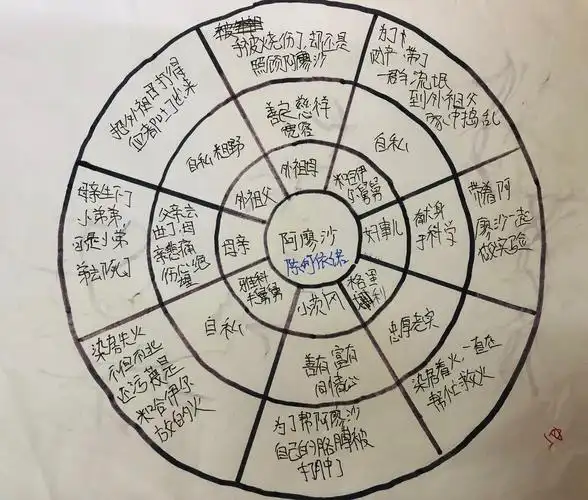 阿廖沙
外祖母
善良慈祥
宽容
手皮烧伤了,却还是
照顾阿廖沙
米哈伊
尔舅舅
自私
为了
财产,带了
一群流氓
到外祖父
家中捣乱
好事儿
献身
于科学
带着阿
廖沙一起
做实验
格里
利
忠厚老实
染房着火,一直在
帮忙救火
小茨冈
善有富有
同情心
为了帮阿廖沙
自己的胳膊被
打肿了
雅科
夫舅舅
自私
染房失火
不但不救
还污蔑是
米哈伊尔
放的火
母亲
父亲去
世了,母
亲悲痛
伤心绝
母亲生下了
小弟弟,
可是小弟
弟去死了
外祖父
自私 粗野
把外祖母打得
血都